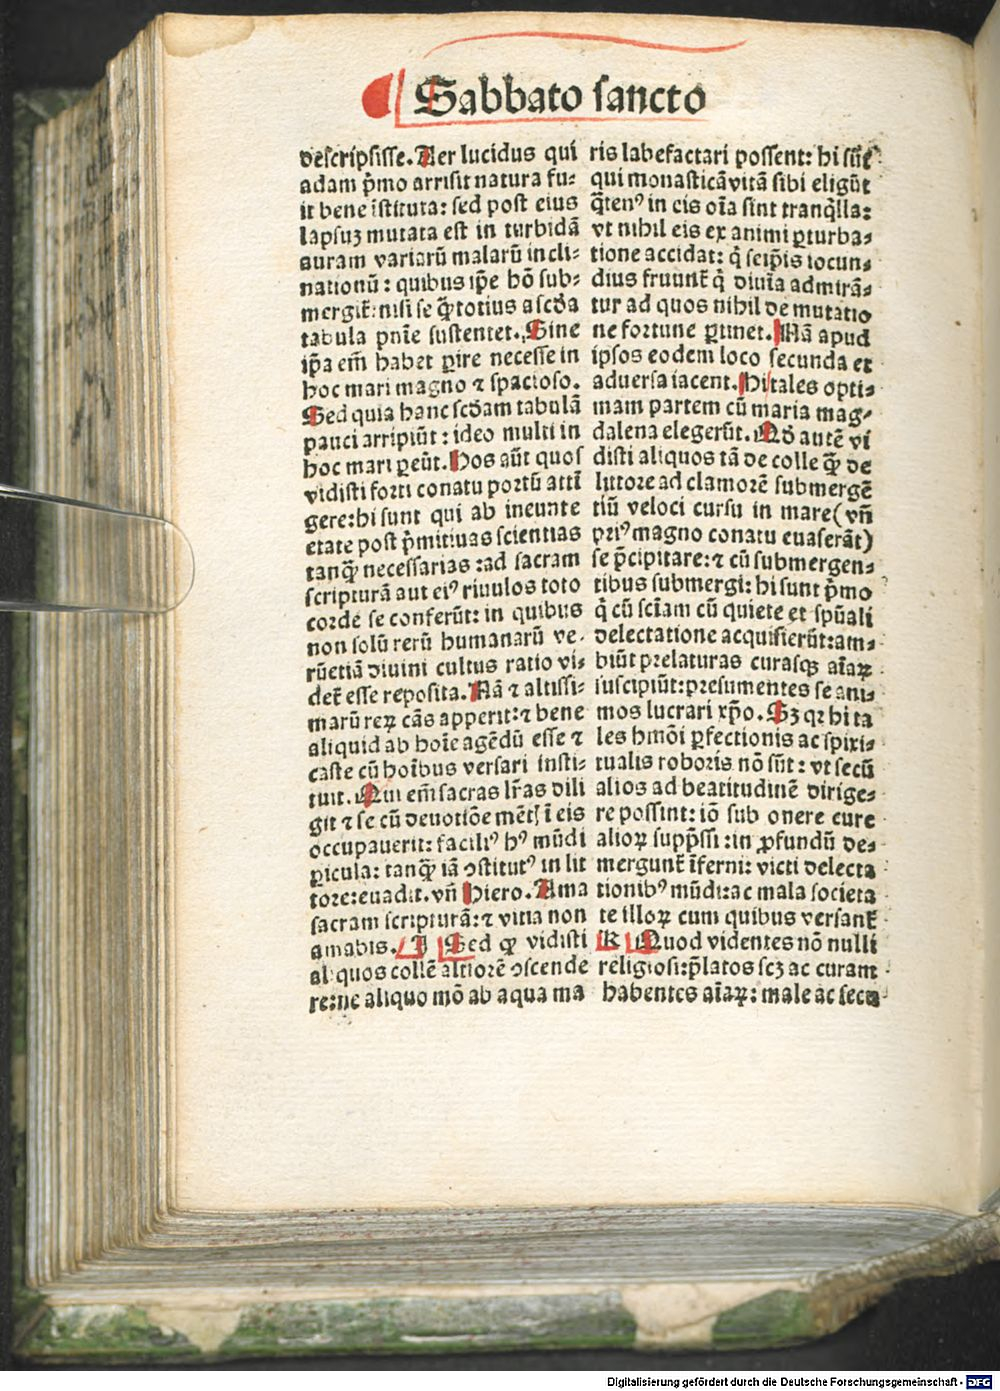 Sabbato sancto
descripsisse. Aer lucidus qui
adam p̄mo arrisit natura fu⸗
it bene īstituta: sed post eius
lapsuʒ mutata est in turbidā
auram variarū malarū incli⸗
nationū: quibus ip̄e hō sub⸗
mergit᷑: nisi se ꝙ̄totius a scd̄a
tabula pn̄ie sustentet. Sine
ip̄a em̄ habet ꝑire necesse in
hoc mari magno ⁊ spacioso.
Sed quia hanc scd̄am tabulā
pauci arripiūt: ideo multi in
hoc mari ꝑeūt. Hos aūt quos
vidisti forti conatu portū attī
gere: hi sunt qui ab ineunte
etate post p̄mitiuas scientias
tanꝙ̄ necessarias: ad sacram
scripturā aut eiꝰ riuulos toto
corde se conferūt: in quibus
non solū rerū humanarū ve⸗
rūetiā diuini cultus ratio vi⸗
det᷑ esse reposita. Nā ⁊ altissi⸗
marū reꝝ cās apperit: ⁊ bene
aliquid ab hoīe agēdū esse ⁊
caste cū hoībus versari insti⸗
tuit. Qui em̄ sacras lr̄as dili
git ⁊ se cū deuotiōe mēt᷑ ī eis
occupauerit: faciliꝰ hꝰ mūdi
ꝑicula: tanꝙ̄ iā ꝯstitutꝰ in lit
tore: euadit. vn̄ Hiero. Ama
sacram scripturā: ⁊ vitia non
amabis. I Sed ꝙ vidisti
aliquos collē altiorē ꝯscende
re: ne aliquo mō ab aqua ma
ris labefactari possent: hi sūt
qui monasticā vitā sibi eligūt
q̄tenꝰ in eis oīa sint tranq̄lla:
vt nihil eis ex animi ꝑturba⸗
tione accidat: q̇ seip̄is iocun⸗
dius fruunt᷑ q̇ diuīa admirā⸗
tur ad quos nihil de mutatio
ne fortune ꝑtinet. Nā apud
ipsos eodem loco secunda et
aduersa iacent. Hi tales opti⸗
mam partem cū maria mag⸗
dalena elegerūt. Qd̄ autē vi
disti aliquos tā de colle ꝙ̄ de
littore ad clamorē submergē
tiū veloci cursu in mare (vn̄
priꝰ magno conatu euaserāt)
se p̄cipitare: ⁊ cū submergen⸗
tibus submergi: hi sunt p̄mo
q̇ cū sciam̄ cū quiete et spūali
delectatione acquisierūt: am⸗
biūt prelaturas curasꝙ aīaꝝ
suscipiūt: presumentes se ani⸗
mos lucrari xp̄o. Sʒ qꝛ hi ta
les hmōi ꝑfectionis ac spiri⸗
tualis roboris nō sūt: vt secū
alios ad beatitudinē dirige⸗
re possint: iō sub onere cure
alioꝝ supp̄ssi: in ꝓfundū de⸗
mergunt᷑ īferni: victi delecta
tionibꝰ mūdi: ac mala societa
te illoꝝ cum quibus versant᷑
K Quod videntes nō nulli
religiosi: p̄latos scʒ ac curam
habentes aīaꝝ: male ac secu
Digitalisierung gefördert durch die Deutsche Forschungsgemeinschaft - DFG